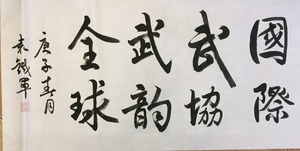 國際
武協
武韵
全球
庚子春月
袁鐵軍